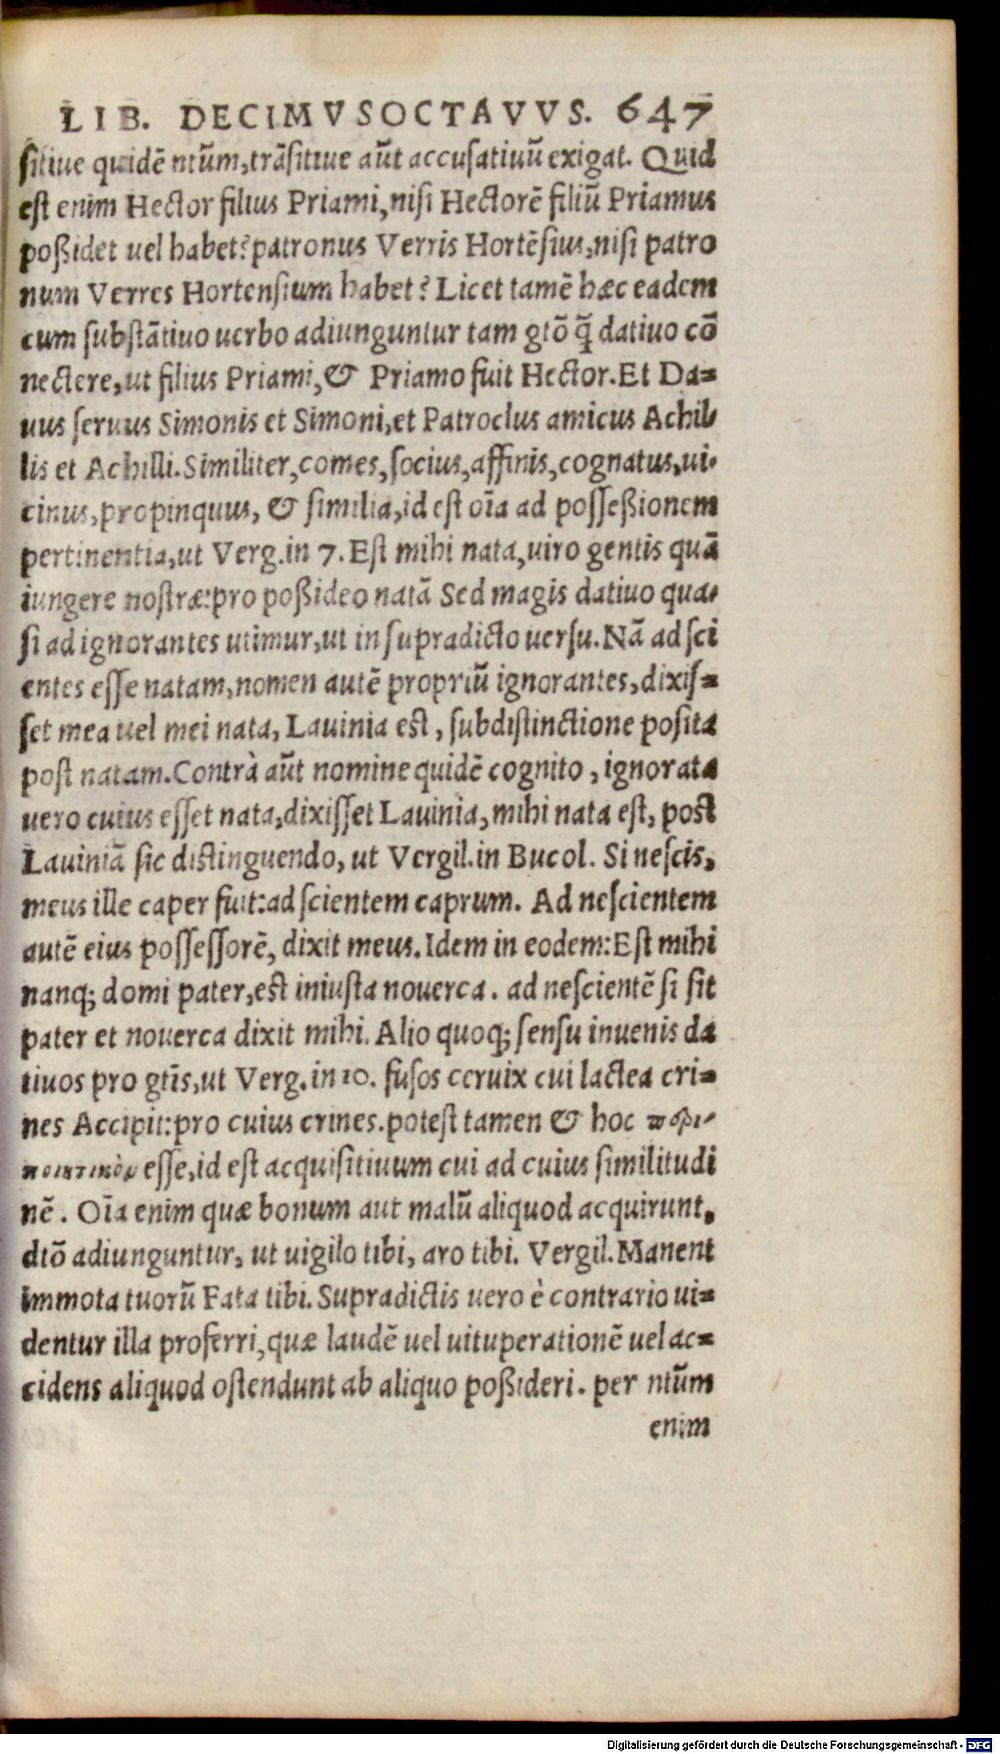 LIB. DECIMVSOCTAVVS. 647
sitiue quidē ntũm, trãsitiue aũt accusatiuũ exigat. Quid
est enim Hector filius Priami, nisi Hectorē filiũ Priamus
poßidet uel habet? patronus Verris Hortēsius, nisi patro
num Verres Hortensium habet? Licet tamē hæc eadem
cum substãtiuo uerbo adiunguntur tam gtõ q̃ datiuo cō
nectere, ut filius Priami, & Priamo fuit Hector. Et Da=
uus seruus Simonis et Simoni, et Patroclus amicus Achil
lis et Achilli. Similiter, comes, socius, affinis, cognatus, ui-
cinus, propinquus, & similia, id est oĩa ad possessionem
pertinentia, ut Verg. in 7. Est mihi nata, uiro gentis quã
iungere nostræ: pro poßideo natã Sed magis datiuo qua-
si ad ignorantes utimur, ut in supradicto uersu. Nã ad sci
entes esse natam, nomen autē propriũ ignorantes, dixis=
set mea uel mei nata, Lauinia est, subdistinctione posita
post natam. Contrà aũt nomine quidē cognito, ignorata
uero cuius esset nata, dixisset Lauinia, mihi nata est, post
Lauiniã sic distinguendo, ut Vergil. in Bucol. Si nescis,
meus ille caper fuit: ad scientem caprum. Ad nescientem
autē eius possessorē, dixit meus. Idem in eodem: Est mihi
nanq; domi pater, est iniusta nouerca. ad nescientē si sit
pater et nouerca dixit mihi. Alio quoq; sensu inuenis da
tiuos pro gtĩs, ut Verg. in 10. fusos ceruix cui lactea cri=
nes Accipit: pro cuius crines. potest tamen & hoc περι-
ποιητικὸν esse, id est acquisitiuum cui ad cuius similitudi
nē. Oĩa enim quæ bonum aut malũ aliquod acquirunt,
dtõ adiunguntur, ut uigilo tibi, aro tibi. Vergil. Manent
immota tuorũ Fata tibi. Supradictis uero è contrario ui=
dentur illa proferri, quæ laudē uel uituperationē uel ac=
cidens aliquod ostendunt ab aliquo poßideri. per ntũm
enim
Digitalisierung gefördert durch die Deutsche Forschungsgemeinschaft - DFG